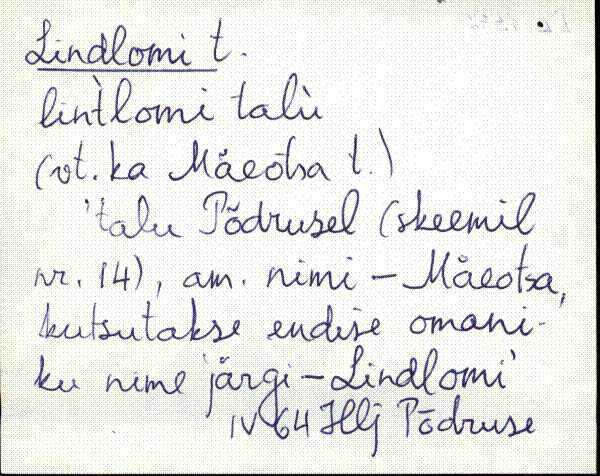 Lindlomi t.
liǹtlomi talù
(vt. ka Mäeotsa t.)
'talu Põdrusel (skeemil
nr. 14), am. nimi – Mäeotsa,
kutsutakse endise omani-
ku nime järgi – Lindlomi
IV 64 Hlj Põdruse